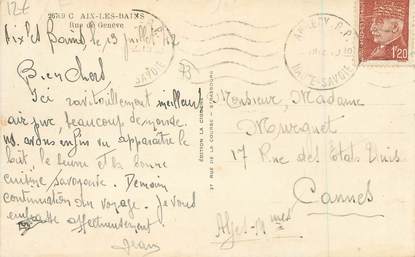 12€
2689 C AIX-LES-BAINS
Rue de Genève
Aix les Bains le 13 Juillet 42
Bien Chers
Ici ravitaillement meilleur
air pur, beaucoup de monde.
ns. avons enfin vu apparaître le
lait, le beurre et la bonne
cuisine savoyarde. Demain
continuation du voyage. Je vous
embrasse affectueusement.
Jean
EDITION LA CIGOGNE
37 RUE DE LA COURSE - STRASBOURG
ANNECY R.P.
HAUTE-SAVOIE
1F20
Monsieur, Madame
Murquet
17 Rue des Etats Unis
Cannes
Alpes-Mmes